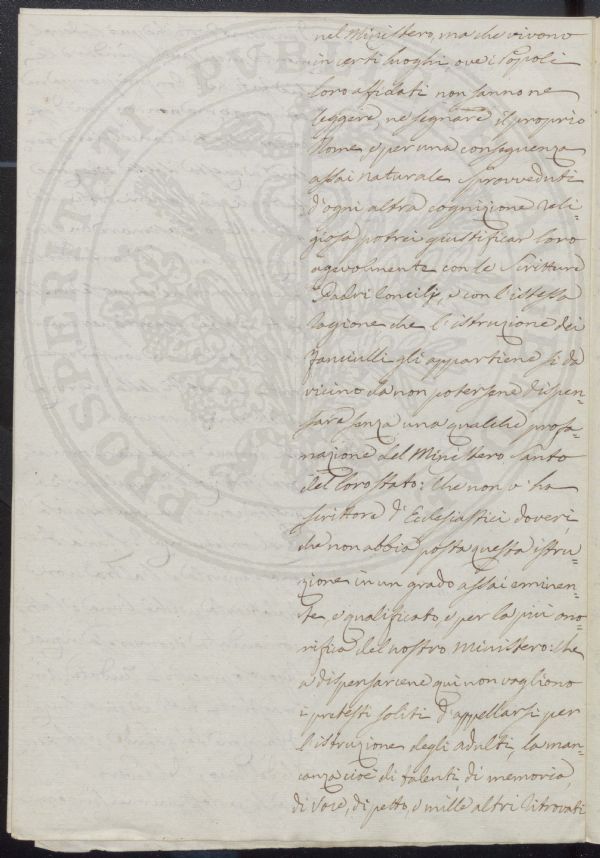 nel Ministero, ma che vivono
in certi luoghi, ove i Popoli
loro affidati non sanno ne
leggere, ne segnare il proprio
Nome, e per una conseguenza
assai naturale sprovveduti
d'ogni altra cognizione Reli=
giosa potrei giustificar loro
agevolmente con le Scritture
Padri Concilj, e con l'istessa
ragione che l'istruzione dei
fanciulli gli appartiene sì da
vicino da non potersene dispen=
sare senza una qualche profa=
nazione del Ministero Santo
del loro stato: Che non v'ha
scrittore d'Ecclesiastici doveri,
che non abbia posta questa istru=
zione in un grado assai eminen=
te, e qualificato, e per la più ono=
rifica del nostro Ministero: Che
a dispensarcene qui non vagliono
i pretesti soliti d'appellarsi per
l'istruzione degli adulti, la man=
canza cioè di talenti, di memoria,
di voce, di petto, e mille altri ritrovati
PROSPERITATI PVBLICAE